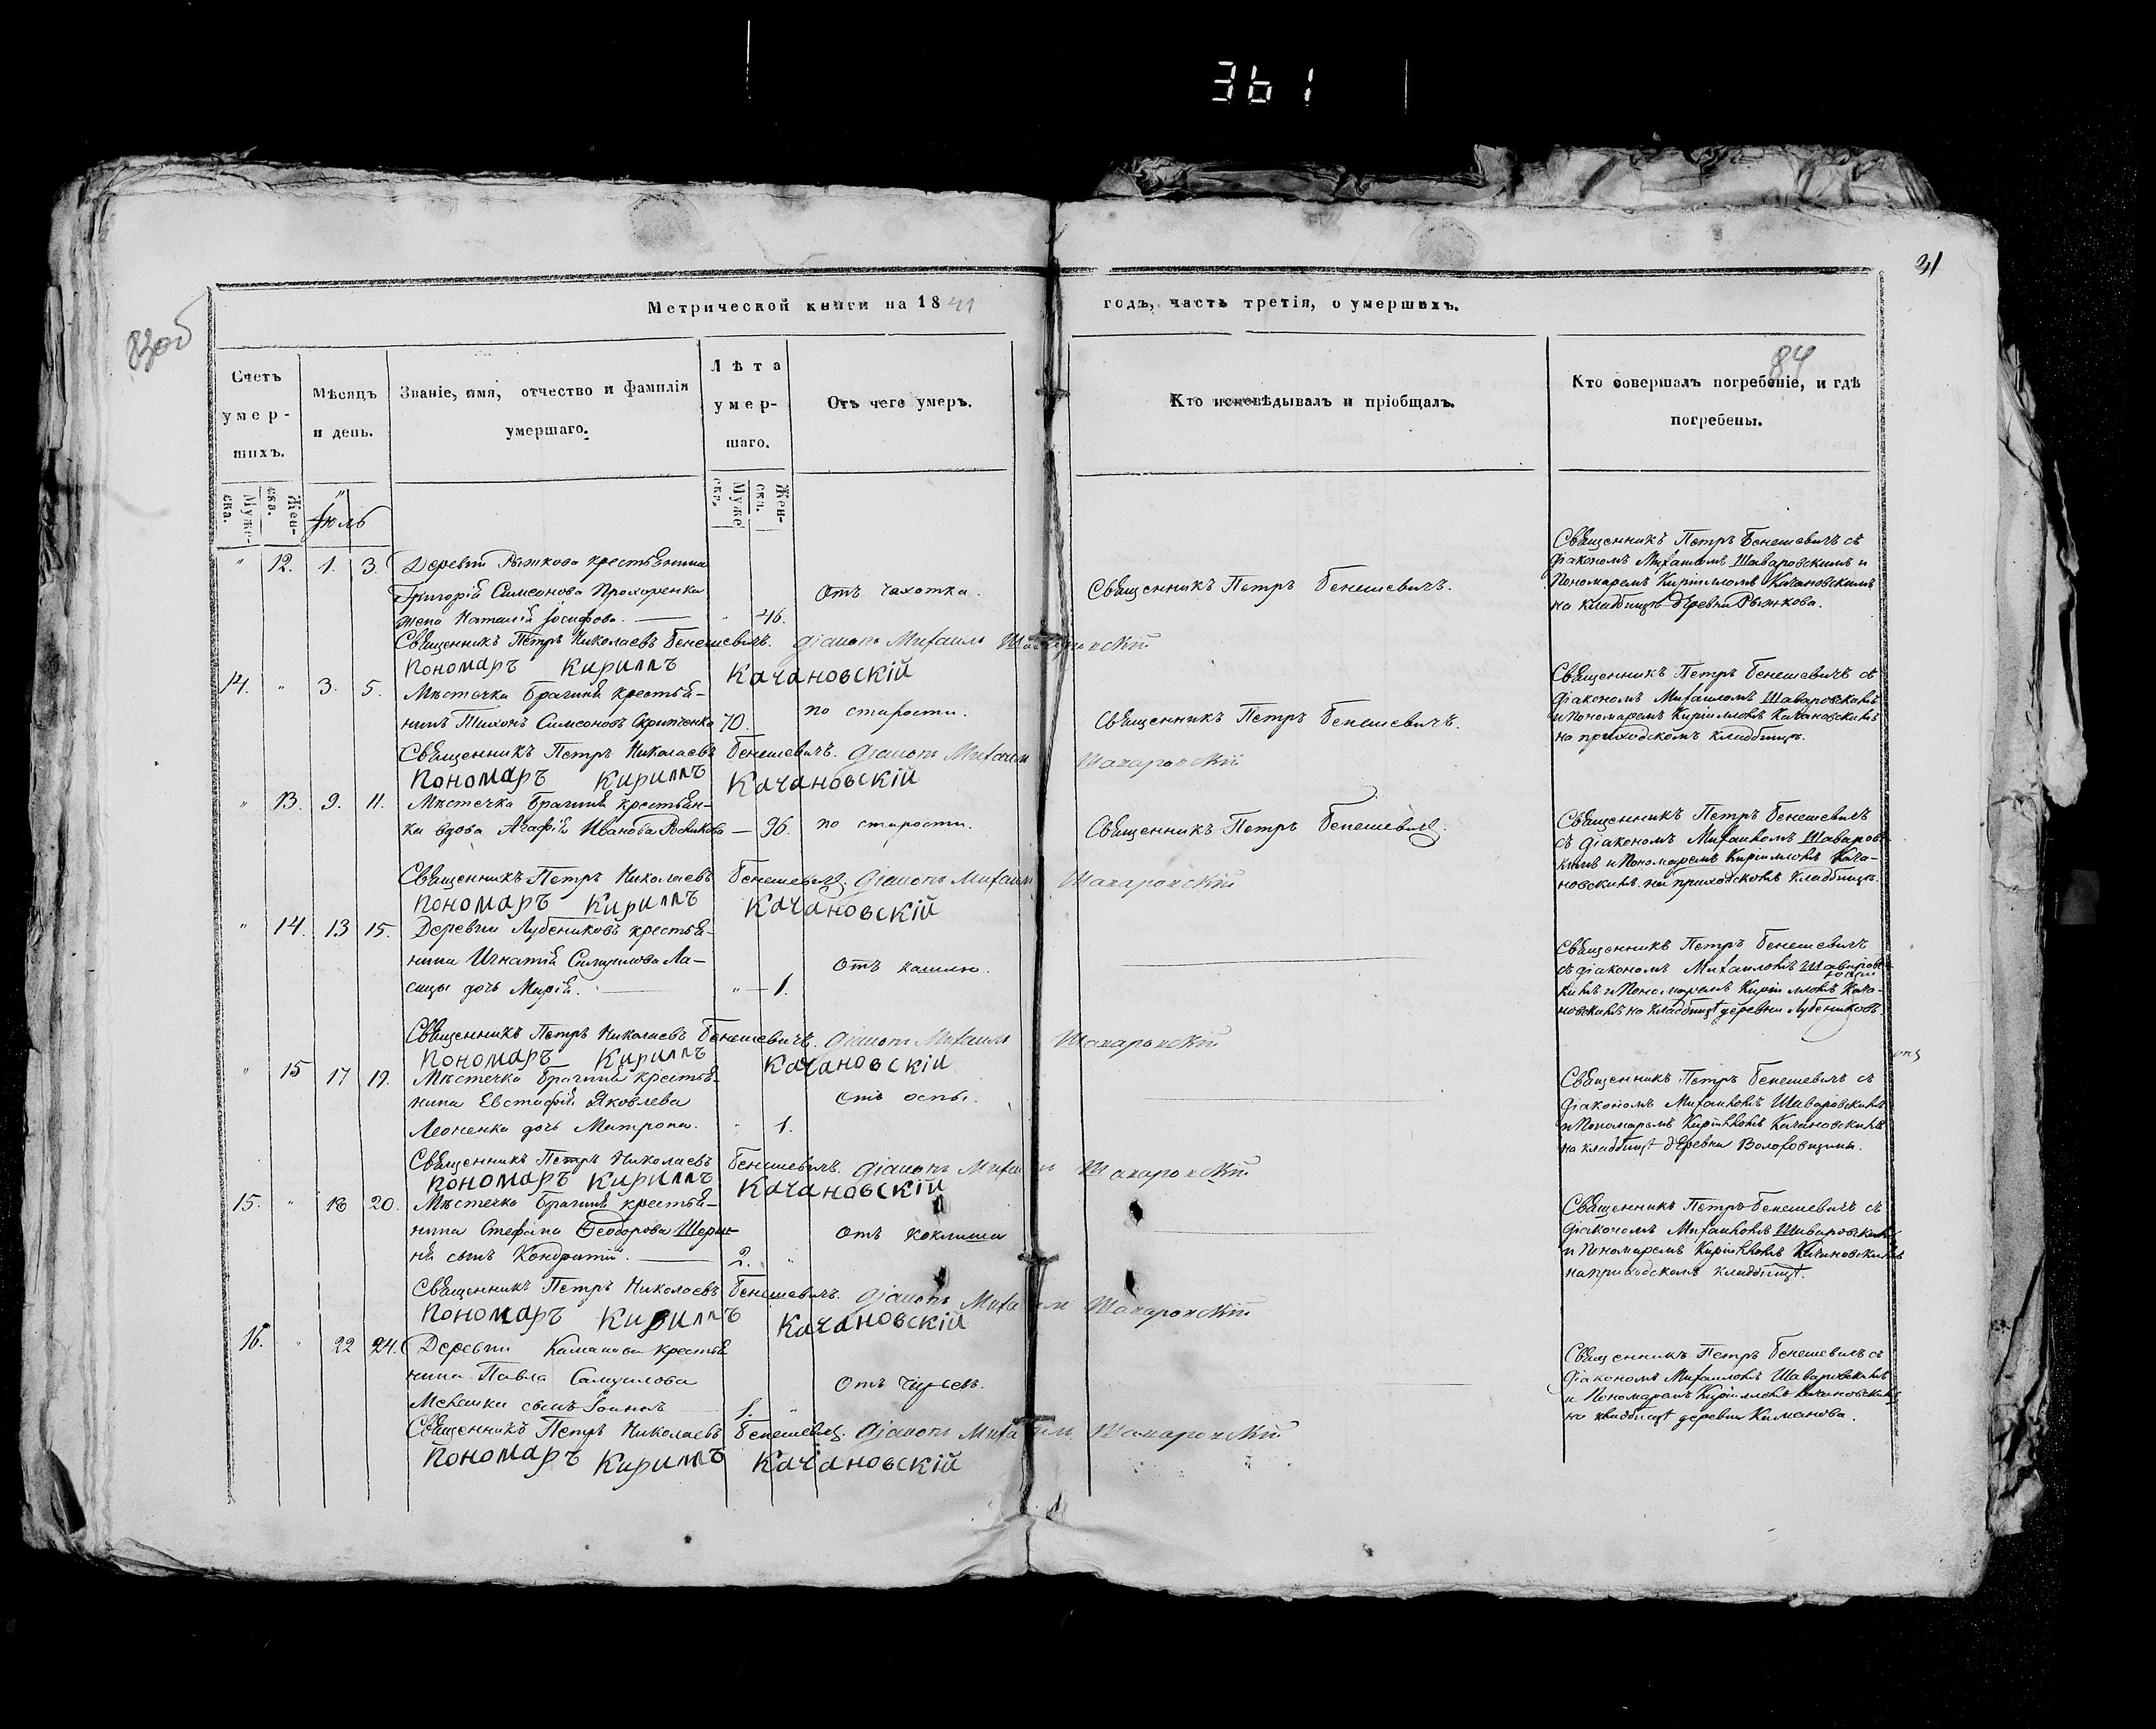 361
31
83об
84
Метрической книги на 1841 годъ, часть третія, о умершихъ.
Счетъ умер- шихъ.
Мѣсяцъ и день.
Званіе, имя, отчество и фамилія умершаго.
Лѣта умер- шаго.
Отъ чего умеръ.
Кто исповѣдывалъ и пріобщалъ.
Кто совершалъ погребеніе, и гдѣ погребены.
Муже- ска.
Жен- ска.
Муже ска.
Жен- ска.
Іюль
" 12. 1. 3. Деревни Рыжкова крестьянина
Григорія Симеонова Прохоренка
жена Наталія Іосифова. — " 46.
Отъ чахотки.
Священникъ Петръ Бенешевичъ.
Священникъ Петръ Бенешевичъ съ
діакономъ Михаиломъ Шаваровскимъ и
Пономаремъ Кирилломъ Качановскимъ
на кладбищѣ деревни Рыжкова.
Священникъ Петръ Николаевъ Бенешевичъ. Діаконъ Михаилъ
Пономаръ Кириллъ Качановскій
14. " 3. 5. Мѣстечка Брагиня крестья-
нинъ Тихонъ Симеоновъ Скрипченко 70.
по старости.
Священникъ Петръ Бенешевичъ.
Священникъ Петръ Бенешевичъ съ
діакономъ Михаиломъ Шаваровскимъ
и Пономаремъ Кирилломъ Качановскимъ
на приходскомъ кладбищѣ.
Священникъ Петръ Николаевъ Бенешевичъ. Діаконъ Михаилъ Шаваровскій
Пономаръ Кириллъ Качановскій
" 13. 9. 11. Мѣстечка Брагиня крестьян-
ка вдова Агафія Иванова — 96.
по старости.
Священникъ Петръ Бенешевичъ.
Священникъ Петръ Бенешевичъ
съ діакономъ Михаиломъ Шаваровс-
кимъ и Пономаремъ Кирилломъ Кача-
новскимъ на приходскомъ кладбищѣ.
Священникъ Петръ Николаевъ Бенешевичъ. Діаконъ Михаилъ Шаваровскій
Пономаръ Кириллъ Качановскій
" 14. 13 15. Деревни Лубениковъ крестья-
нина Игнатія Самуилова Ла-
сицы дочь Марія. — " — 1.
Отъ кашлю.
Священникъ Петръ Бенешевичъ
съ діакономъ Михаиломъ Шаваровс-
кимъ и Пономаремъ Кирилломъ Кача-
новскимъ на кладбищѣ деревни Лубениковъ.
Священникъ Петръ Николаевъ Бенешевичъ. Діаконъ Михаилъ Шаваровскій
Пономаръ Кириллъ Качановскій
" 15 17 19. Мѣстечка Брагиня крестья-
нина Евстафія Яковлева
Леоненка дочь Матрона. " 1.
Отъ оспы.
Священникъ Петръ Бенешевичъ съ
діакономъ Михаиломъ Шаваровскимъ
и Пономаремъ Кирилломъ Качановскимъ
на кладбищѣ деревни Волоховщины.
Священникъ Петръ Николаевъ Бенешевичъ. Діаконъ Михаилъ Шаваровскій
Пономаръ Кириллъ Качановскій
15. " 18 20. Мѣстечка Брагиня крестья-
нина Стефана Ѳеодорова
сынъ Кондратій. — 2. "
Отъ коклиша
Священникъ Петръ Бенешевичъ съ
діакономъ Михаиломъ Шаваровскимъ
и Пономаремъ Кирилломъ Качановскимъ
на приходскомъ кладбищѣ.
Священникъ Петръ Николаевъ Бенешевичъ. Діаконъ Михаилъ Шаваровскій
Пономаръ Кириллъ Качановскій
16. " 22 24. Деревни Каманова крестья
нина Павла Самуилова
сынъ Іоаннъ 1. "
Отъ чирьевъ.
Священникъ Петръ Бенешевичъ съ
діакономъ Михаиломъ Шаваровскимъ
и Пономаремъ Кирилломъ Качановскимъ
на кладбищѣ деревни Каманова.
Священникъ Петръ Николаевъ Бенешевичъ. Діаконъ Михаилъ Шаваровскій
Пономаръ Кириллъ Качановскій